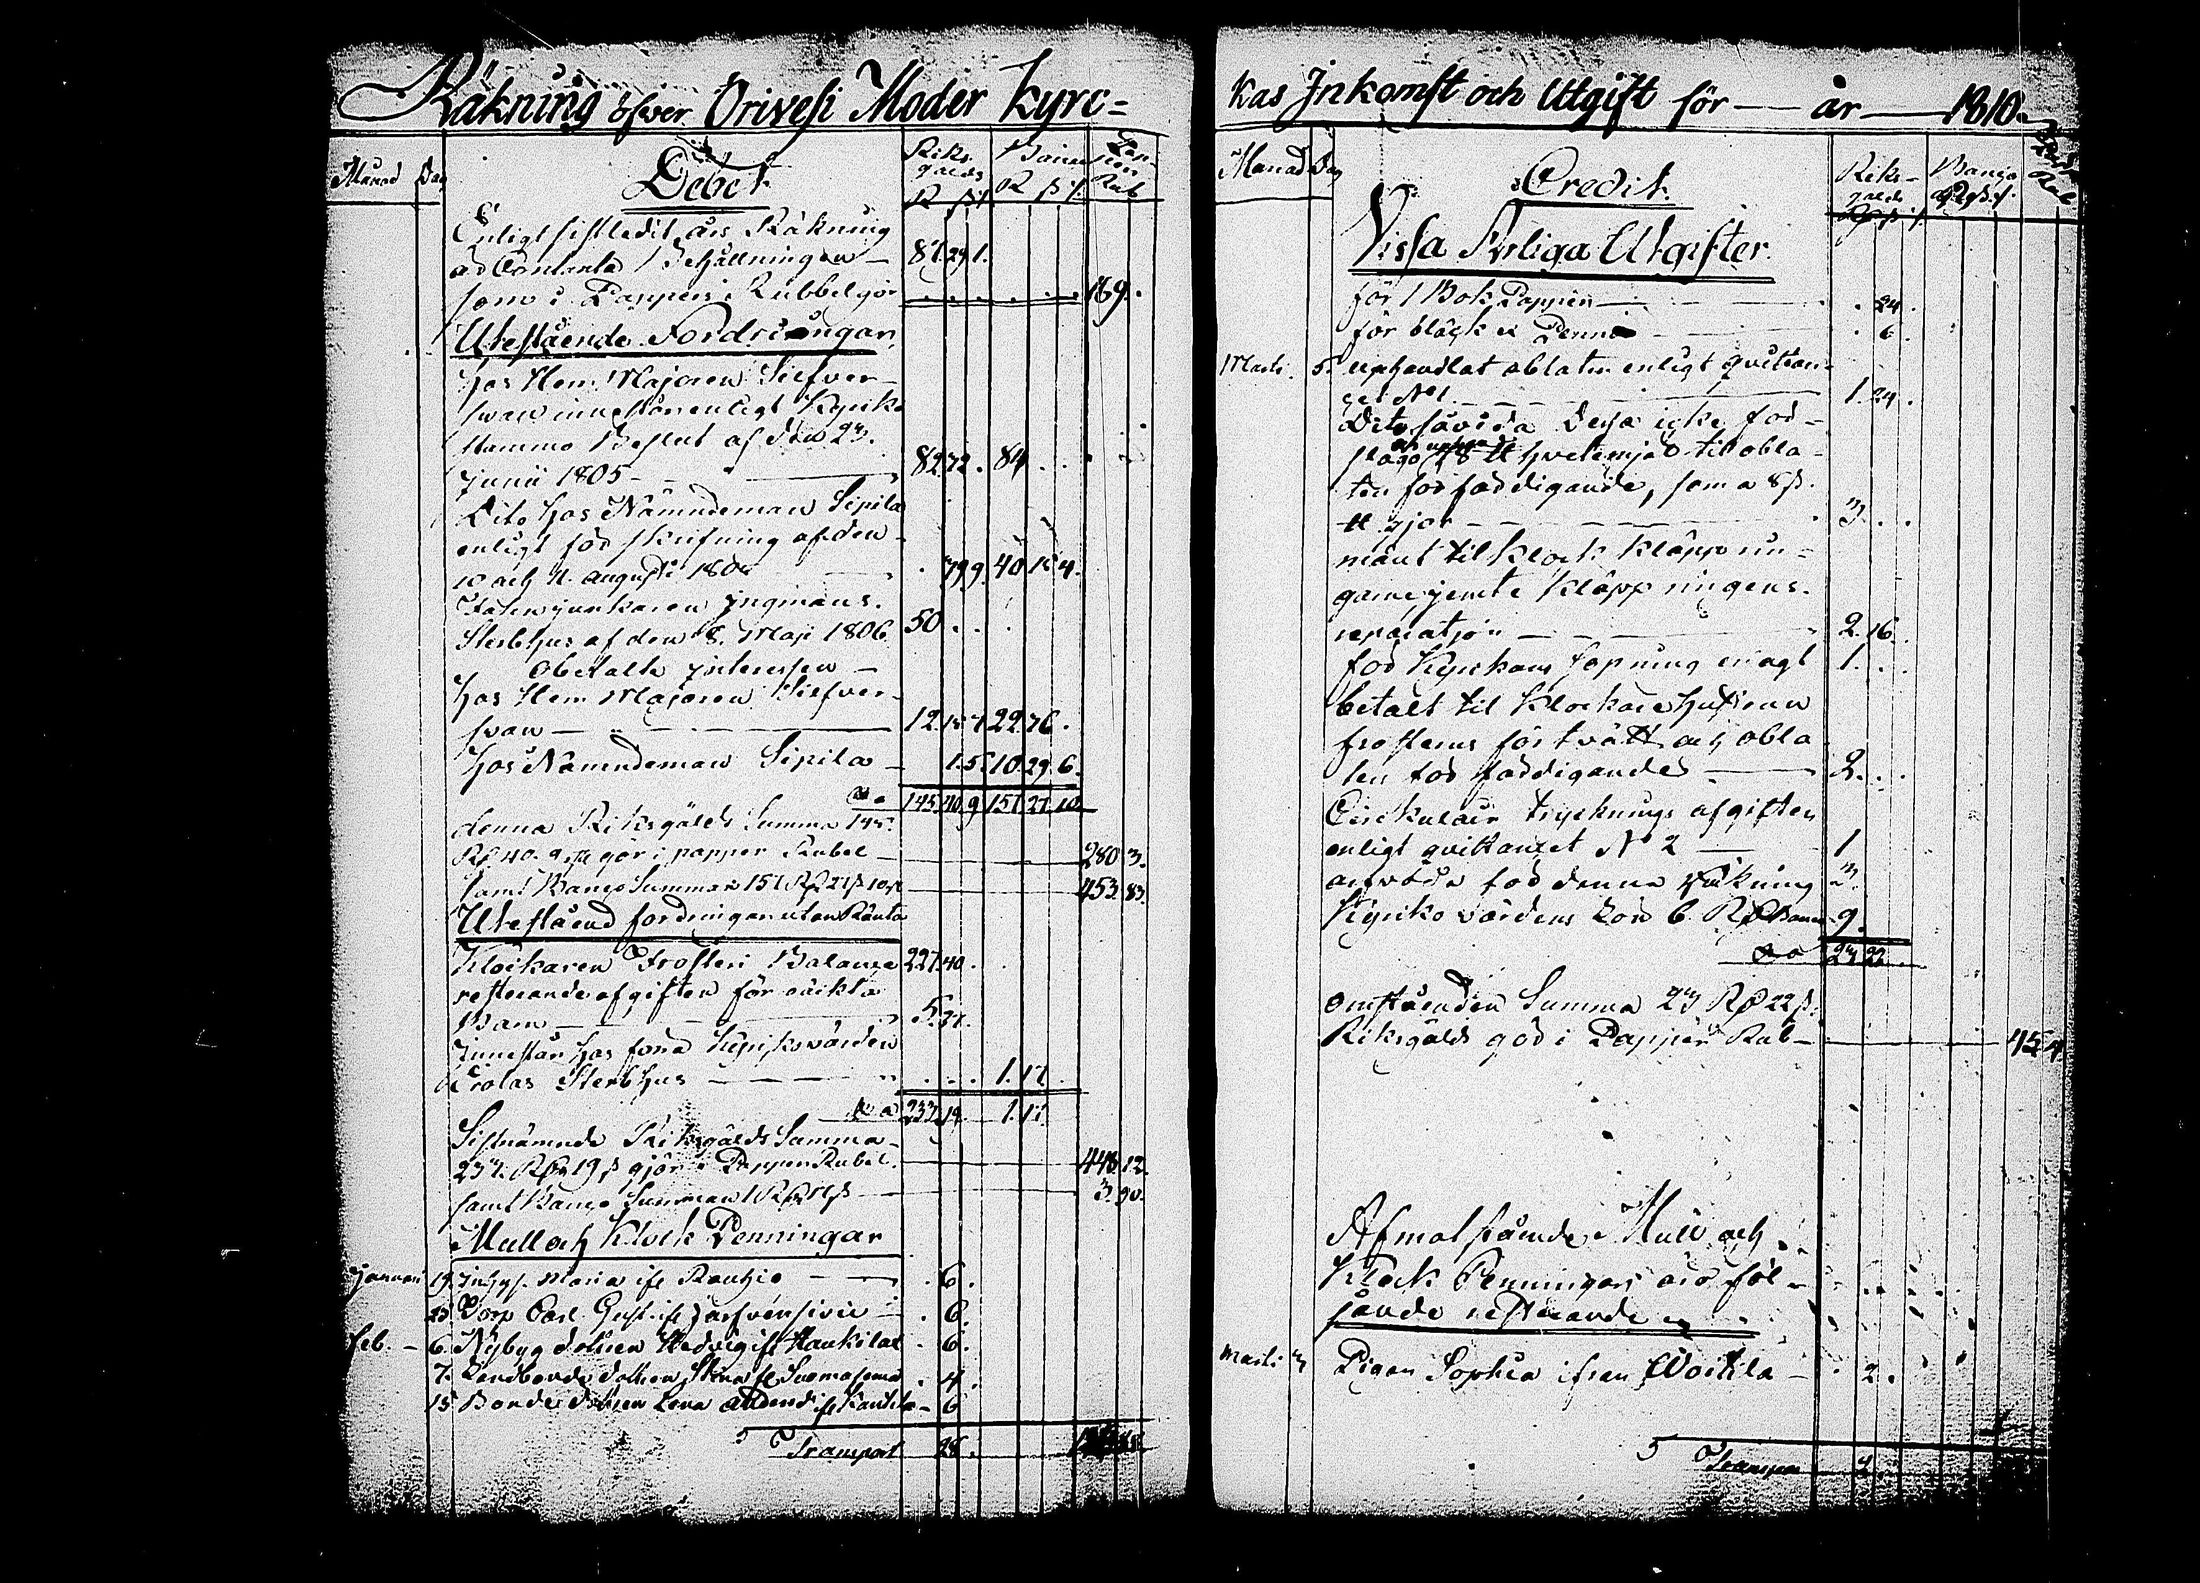 Räkning öfver Orivesi Moder Kyrc=
Månad Dag
Debet
Riks
gälds
R ß
Banco
R ß
Rub
Enligt sistledit års Räkning
ad Contanta Behållningen — 87. 29 1.
som i Pappers Rubbel gör 169.
Utestående Fordringar
hos Herr Majoren Silfver-
swan innestår enligt Kyrko
Stammo Beslut af den 23.
Junii 1805 — 82 72. 84
Dito hos Nämndeman Sipila
enligt förskrifning af den
10 och 11. augusti 180 — . 79 9. 40 15 4.
Fahnjunkaren Ingmans.
Sterbhus af den 8. Maji 1806. 50
Obetalte Interessen —
hos Herr Majoren Silfver-
swan — 12. 15 7 22. 76.
hos Nämndeman Sipila — 1. 5. 10. 29. 6.
145. 40. 9. 151. 27. 10.
denna Riksgälds Summa 145.
R 40. 9 gör i papper Rubel — 280 3.
samt Banco Summan 151 R 27 ß 10 — 453. 83.
Utestående fordringar utan Ränta
Klockaren Frosteri Balance 227. 40.
resterande afgiften för oäckta
Barn — 5. 27.
Innestår hos förra Kyrkovärden
Erolas Sterbhus — 1. 17.
233. 19. 1. 17.
Sistnämnde Riksgälds Summa
233. R 19 ß gjör i Papper Rubel — 448 12.
samt Banco Summan 1 R 17 ß — 3. 90.
Mull och Klock Penningar
Januari 19. Maria ifr Rauhjo — . 6.
25 Carl Gust. ifr Jarfvensivu — . 6.
Feb. — 6. Nybyg dottren Hedvig ifr Haukilax . 6.
7. Landbonde dottren Stina fr Suomasema . 4.
15 Bonde dottren Lena ifr Kautila — 6
Transport 28.
kas Inkomst och Utgift för — år — 1810.
Månad Dag
Credit.
Riks-
gälds
Banco
Rub
Vissa Årliga Utgifter
för 1 Bok Papper — . 24.
för bläck & Penno — . 6.
Marti. 5. uphandlat oblater enligt qvitan-
zet No 1 — 1. 24.
Dito såvida Desse icke för-
slago 18 ℔ hvetemjöl til obla-
ten förfärdigande, som a 8 ß.
℔ gjör — 3.
mänt til Klock Kläpp rin-
garne, jemte Kläpp ringens.
reparatjon — 2. 16.
för Kyrkans sopning enligt 1.
betalt til Klockare hustrun
Frosterus för tvätt och obla
ten förfärdigandes — 2.
Circkulair trycknings afgiften
enligt qvittanzet No 2 — 1
arfvode för denna Räkning 3.
Kyrkovärdens Lön 6. R Banco 9.
23 22
omstående Summa 23 R 22 ß.
Riksgälds gör i Papper Rub — 45 4
Afmolstående Mull och
Klock Penningar äro föl-
jande resterande
Marti 3 Pigan Sophia ifrån Woitila — . 2.